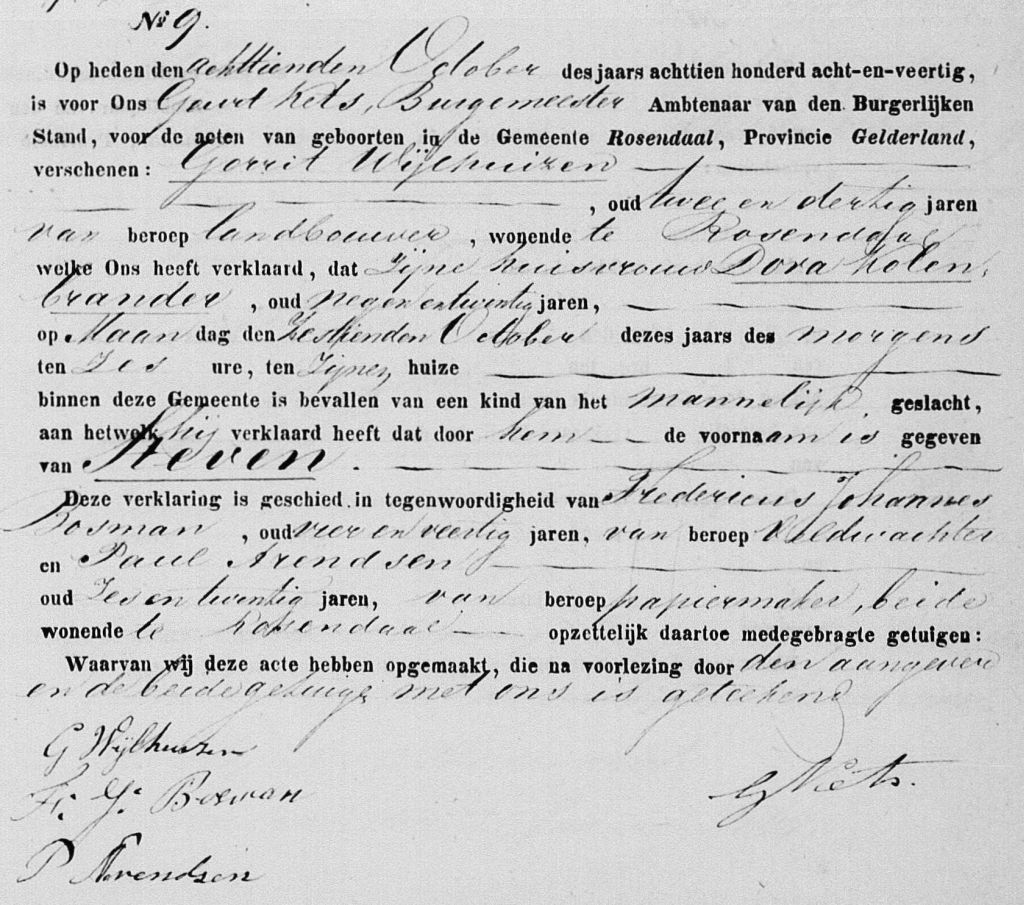 No 9.
Op heden den achttienden October des jaars achttien honderd acht-en-veertig,
is voor Ons Geurt Kets, Burgemeester Ambtenaar van den Burgerlijken
Stand, voor de acten van geboorten in de Gemeente Rosendaal, Provincie Gelderland,
verschenen: Gerrit Wijlhuizen
, oud twee en dertig jaren
van beroep landbouwer, wonende te Rosendaal
welke Ons heeft verklaard, dat zijne huisvrouw Dora Kolen,
brander, oud negen en twintig jaren,
op Maandag den zestienden October dezes jaars des morgens
ten zes ure, ten zijnen huize
binnen deze Gemeente is bevallen van een kind van het mannelijk geslacht,
aan hetwelk hij verklaard heeft dat door hem de voornaam is gegeven
van Steven.
Deze verklaring is geschied in tegenwoordigheid van Fredericus Johannes
Bosman, oud vier en veertig jaren, van beroep Veldwachter
en Paul Arendsen
oud zes en twintig jaren, van beroep papiermaker, beide
wonende te Rosendaal opzettelijk daartoe medegebragte getuigen:
Waarvan wij deze acte hebben opgemaakt, die na voorlezing door den aangever
en de beide getuige met ons is geteekend
G Wijlhuizen
F. J. Bosman
G Kets.
P Arendsen